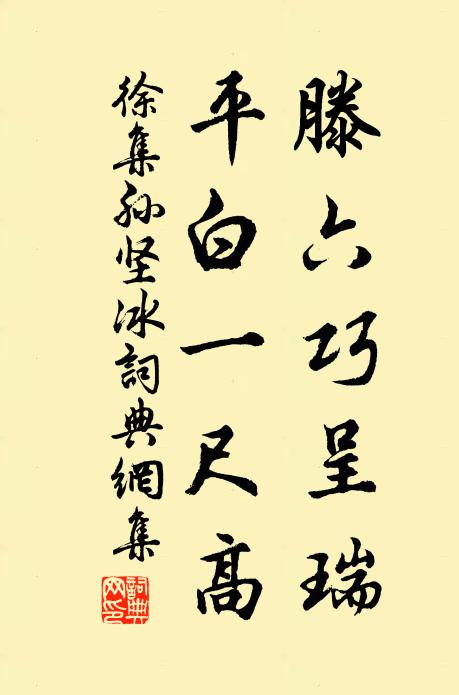 滕六巧呈瑞
平白一尺高
徐集孙坚冰詞典網集
詞典網印